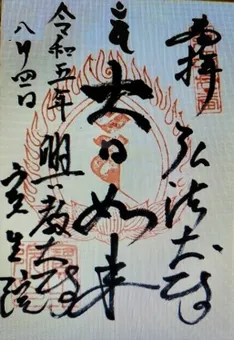 奉拝
弘法大師
大日如来
明教大師
実生院
令和五年
八月四日